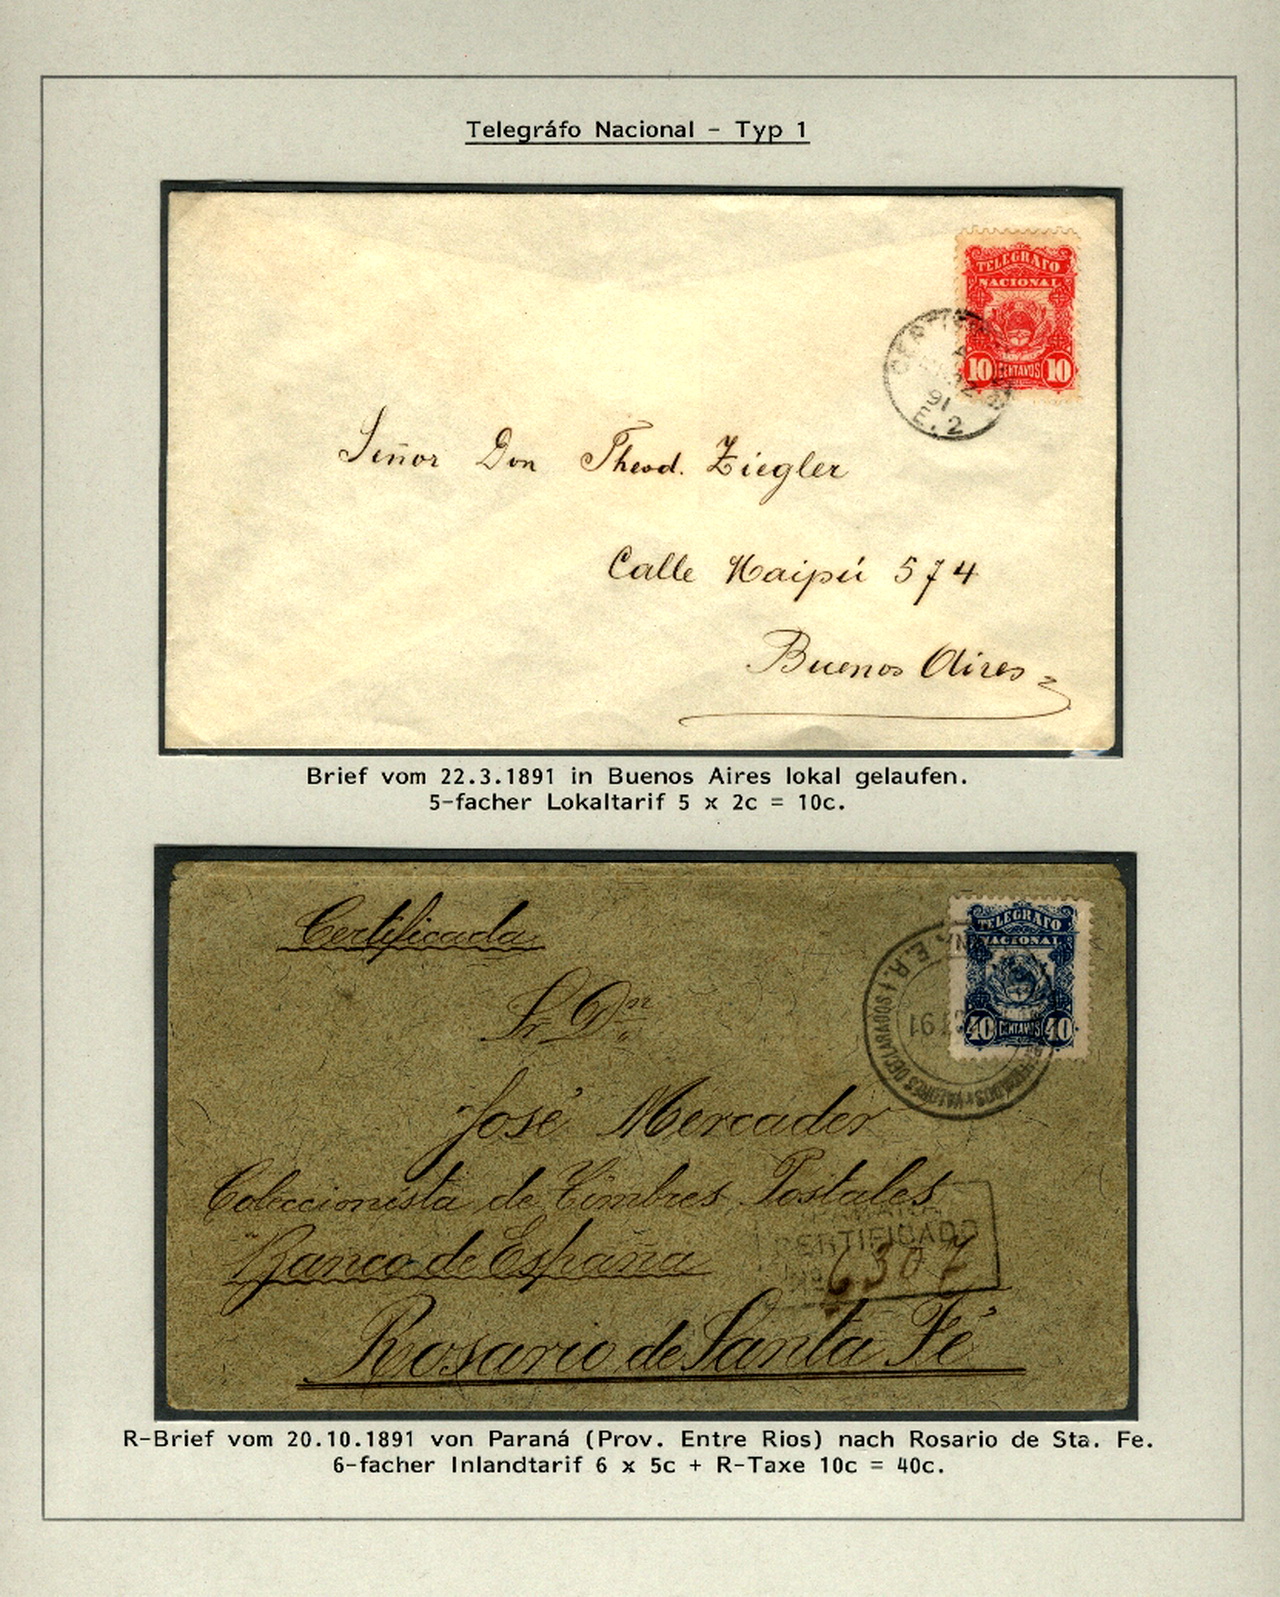 Telegráfo Nacional - Typ 1
TELEGRAFO
NACIONAL
10 CENTAVOS 10
91
E. 2
Señor Don Theod. Ziegler
Calle Maipú 574
Buenos Aires
Brief vom 22.3.1891 in Buenos Aires lokal gelaufen.
5-facher Lokaltarif 5 x 2c = 10c.
Certificada
TELEGRAFO
NACIONAL
40 CENTAVOS 40
E.R.
VALORES DECLARADOS
91
Sr. Dn.
José Mercader
Coleccionista de Timbres Postales
Banco de España
CERTIFICADO
No 6307
Rosario de Santa Fé
R-Brief vom 20.10.1891 von Paraná (Prov. Entre Rios) nach Rosario de Sta. Fe.
6-facher Inlandtarif 6 x 5c + R-Taxe 10c = 40c.